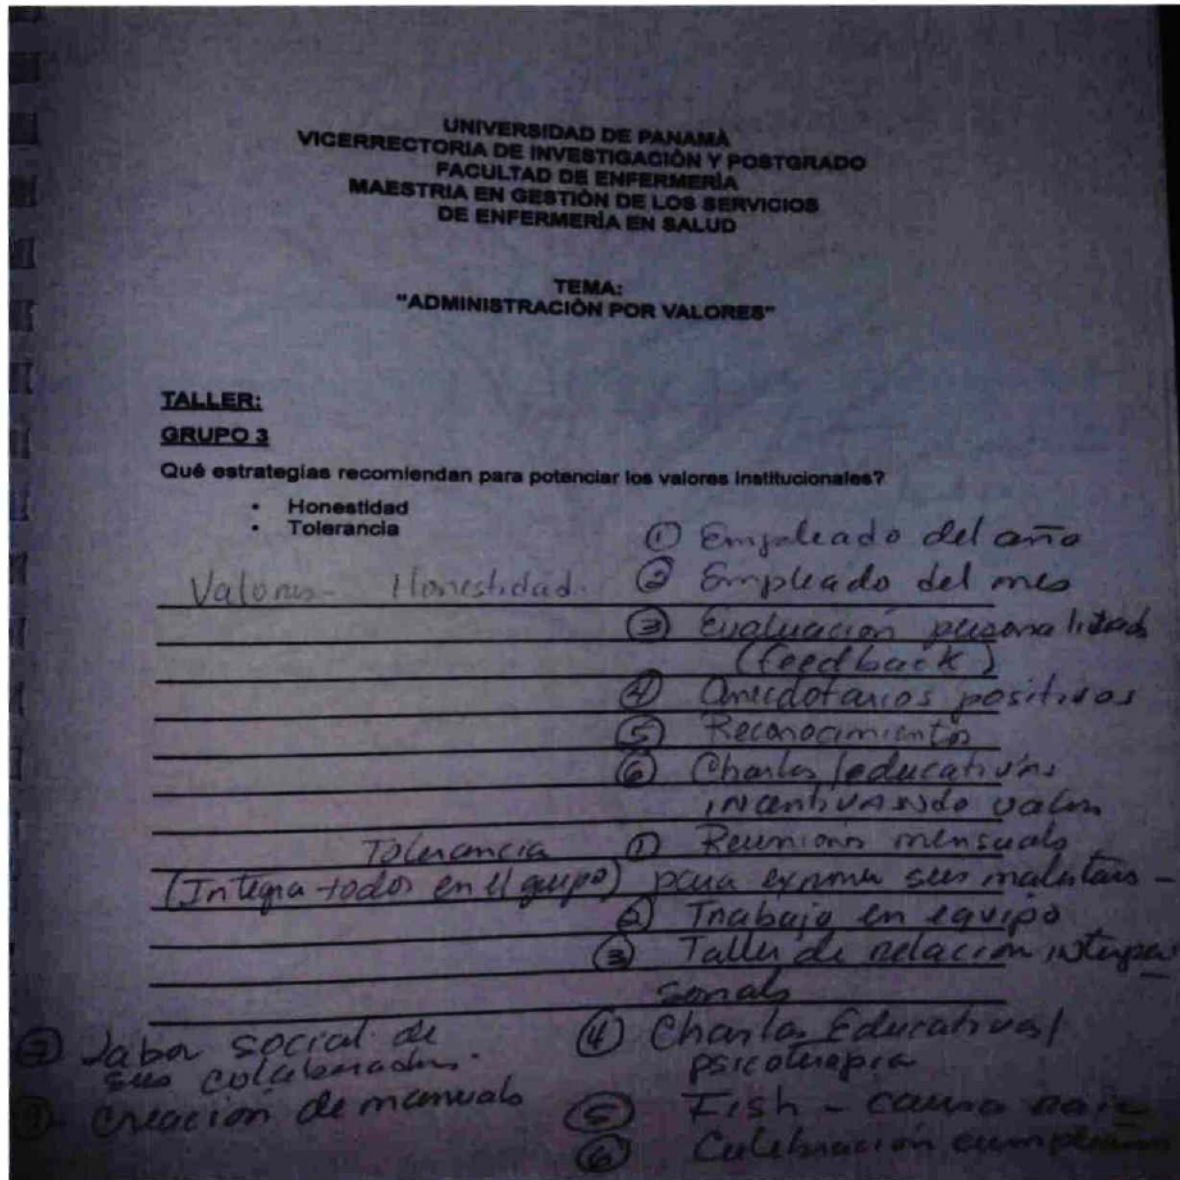 UNIVERSIDAD DE PANAMÀ
VICERRECTORIA DE INVESTIGACIÓN Y POSTGRADO
FACULTAD DE ENFERMERÍA
MAESTRIA EN GESTIÓN DE LOS SERVICIOS
DE ENFERMERÍA EN SALUD
TEMA:
"ADMINISTRACIÓN POR VALORES"
TALLER:
GRUPO 3
Qué estrategias recomiendan para potenciar los valores institucionales?
• Honestidad
• Tolerancia
① Empleado del año
Valores - Honestidad. ② Empleado del mes
③ Evaluación
(feedback)
④ Anecdotarios positivos
⑤ Reconocimientos
⑥ Charlas educativas
incentivando
Tolerancia ① Reunion mensuals
(Integra todos en el grupo) para sus
② Trabajo en equipo
③ Taller de relación interper
sonals
④ Charlas Educativas/
psicoterapia
⑤ Fish - causa raiz
⑥ Celebración
Labor social de
sus colaboradores.
Creación de manuals